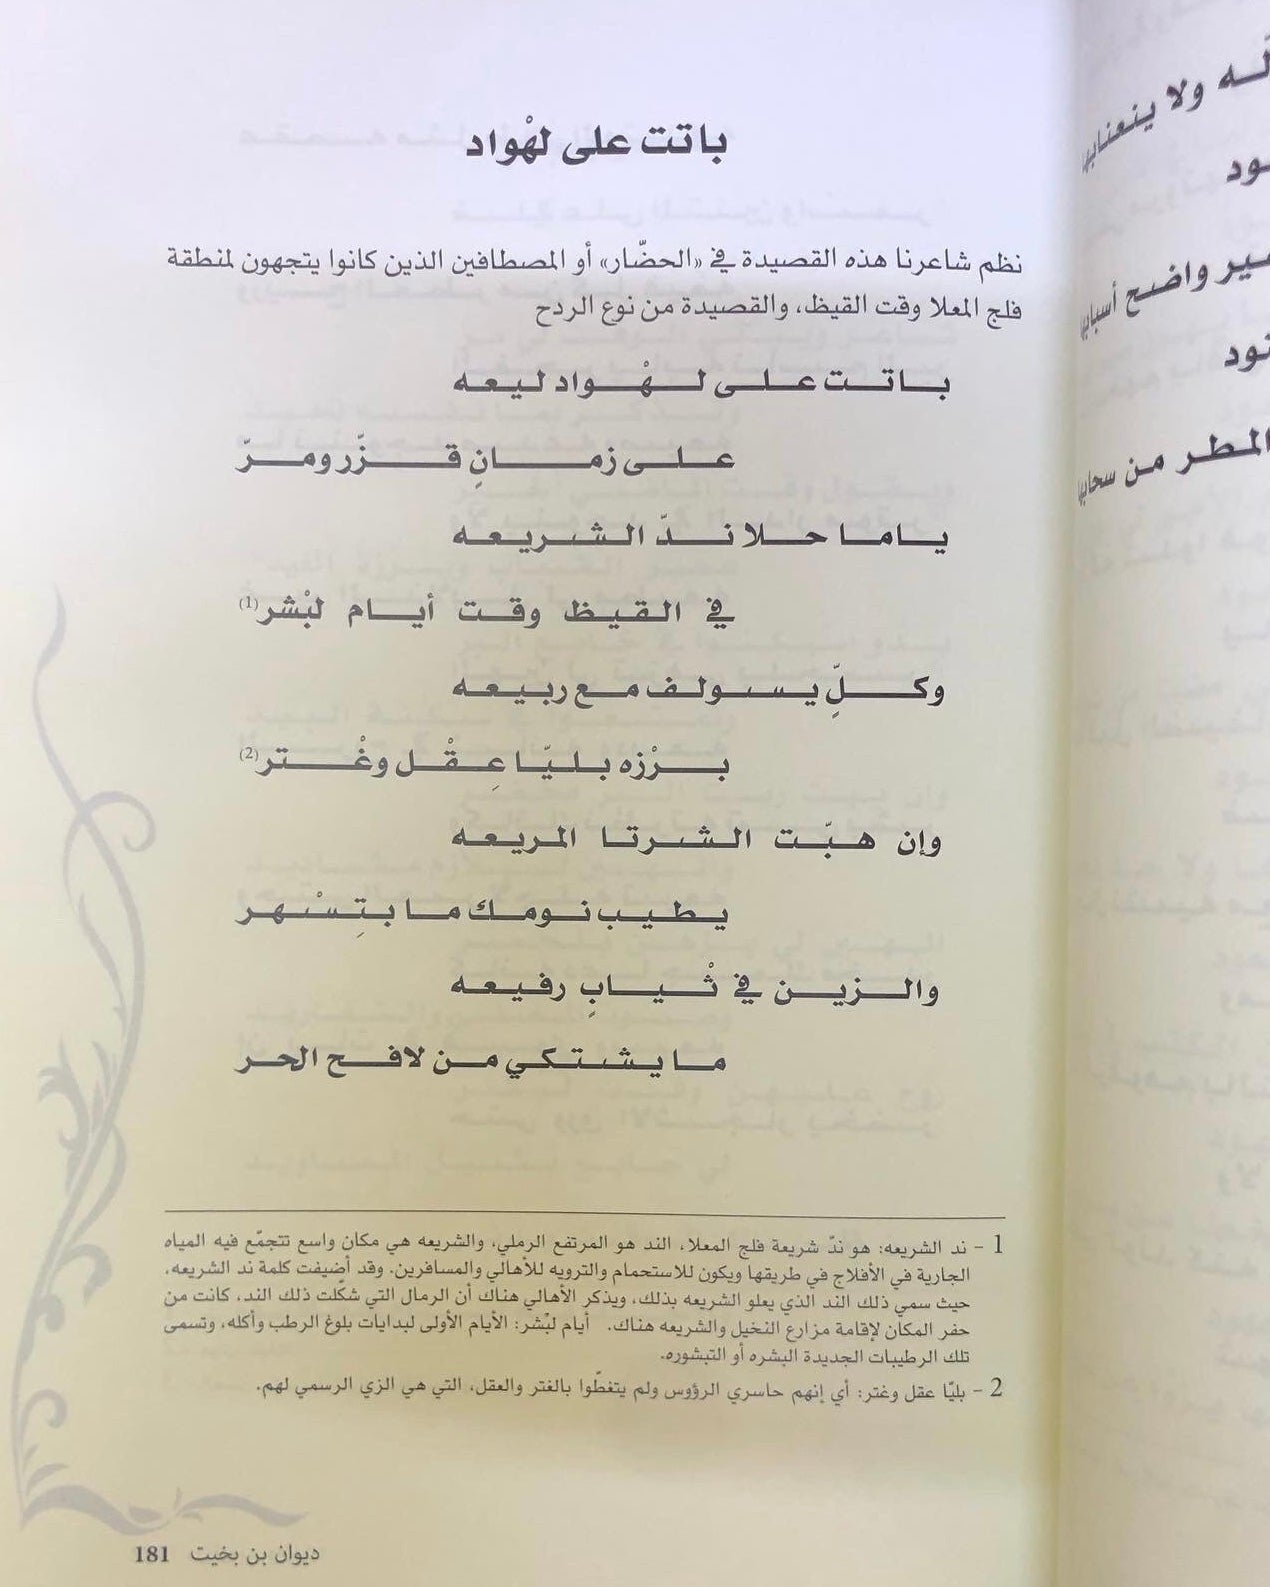 باتت على لهْواد
نظم شاعرنا هذه القصيدة في «الحضّار» أو المصطافين الذين كانوا يتجهون لمنطقة
فلج المعلا وقت القيظ، والقصيدة من نوع الردح
باتت على لهْواد ليعه
على زمانِ قزّر ومرّ
ياما حلا ندّ الشريعه
في القيظ وقت أيام لبْشر(1)
وكلّ يسولف مع ربيعه
برْزه بليّا عِقْل وغْتر(2)
وإن هبّت الشرتا المريعه
يطيب نومك ما بتِسْهر
والزين في ثْيابٍ رفيعه
ما يشتكي من لافح الحر
1 - ند الشريعه: هو ندّ شريعة فلج المعلا، الند هو المرتفع الرملي، والشريعه هي مكان واسع تتجمّع فيه المياه
الجارية في الأفلاج في طريقها ويكون للاستحمام والترويه للأهالي والمسافرين. وقد أضيفت كلمة ند الشريعه،
حيث سمي ذلك الند الذي يعلو الشريعه بذلك، ويذكر الأهالي هناك أن الرمال التي شكّلت ذلك الند، كانت من
حفر المكان لإقامة مزارع النخيل والشريعه هناك. أيام لبْشر: الأيام الأولى لبدايات بلوغ الرطب وأكله، وتسمى
تلك الرطيبات الجديدة البشره أو التبشوره.
2 - بليّا عقل وغتر: أي إنهم حاسري الرؤوس ولم يتغطّوا بالغتر والعقل، التي هي الزي الرسمي لهم.
ديوان بن بخيت 181
له ولا ينعنابها
ود
ير واضح أسبابها
نود
المطر من سحابها